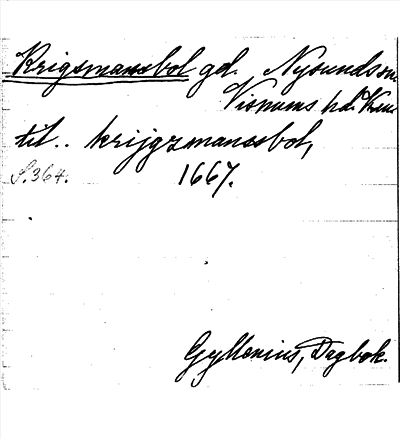 Krigsmansbol gd. Nysunds sn.
Visnums hd. Vrml
til.. krijgzmanssbol,
S. 364. 1667.
Gyllenius, Dagbok.